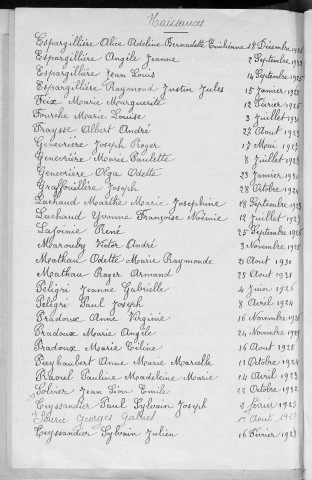 Naissances
Espargillière Alice Adeline Bernadette Emilienne 18 Décembre
Espargillière Angèle Jeanne 2 Septembre
Espargillière Jean Louis 14 Septembre
Espargillière Raymond Justin Jules 15 Janvier
Feix Marie Marguerite 12 Février 1925
Fourche Marie Louise 3 Juillet
Fraysse Albert André 27 Août 1923
Genevrière Joseph Roger 17 Mai
Genevrière Marie Paulette 8 Juillet
Genevrière Olga Odette 23 Janvier
Graffouillère Joseph 28 Octobre 1924
Lachaud Marthe Marie Josephine 18 Septembre
Lachaud Yvonne Françoise Noémie 12 Juillet
Lafoinie René 25 Septembre
Marouby Victor André 3 Novembre
Mathau Odette Marie Raymonde 2 Août 1930
Mathau Roger Armand 25 Août 1931
Peligri Jeanne Gabrielle 4 Juin 1926
Peligri Paul Joseph 8 Avril 1924
Pradoux Anne Virginie 16 Novembre
Pradoux Marie Angèle 24 Novembre
Pradoux Marie Céline 16 Août
Puyhaubert Anne Marie Marcelle 11 Octobre 1924
Raoul Pauline Madeleine Marie 14 Avril 1923
Jean Emile 22 Octobre
Teyssandier Paul Sylvain Joseph 2 Février
Georges Août
Teyssandier Sylvain Julien 16 Février